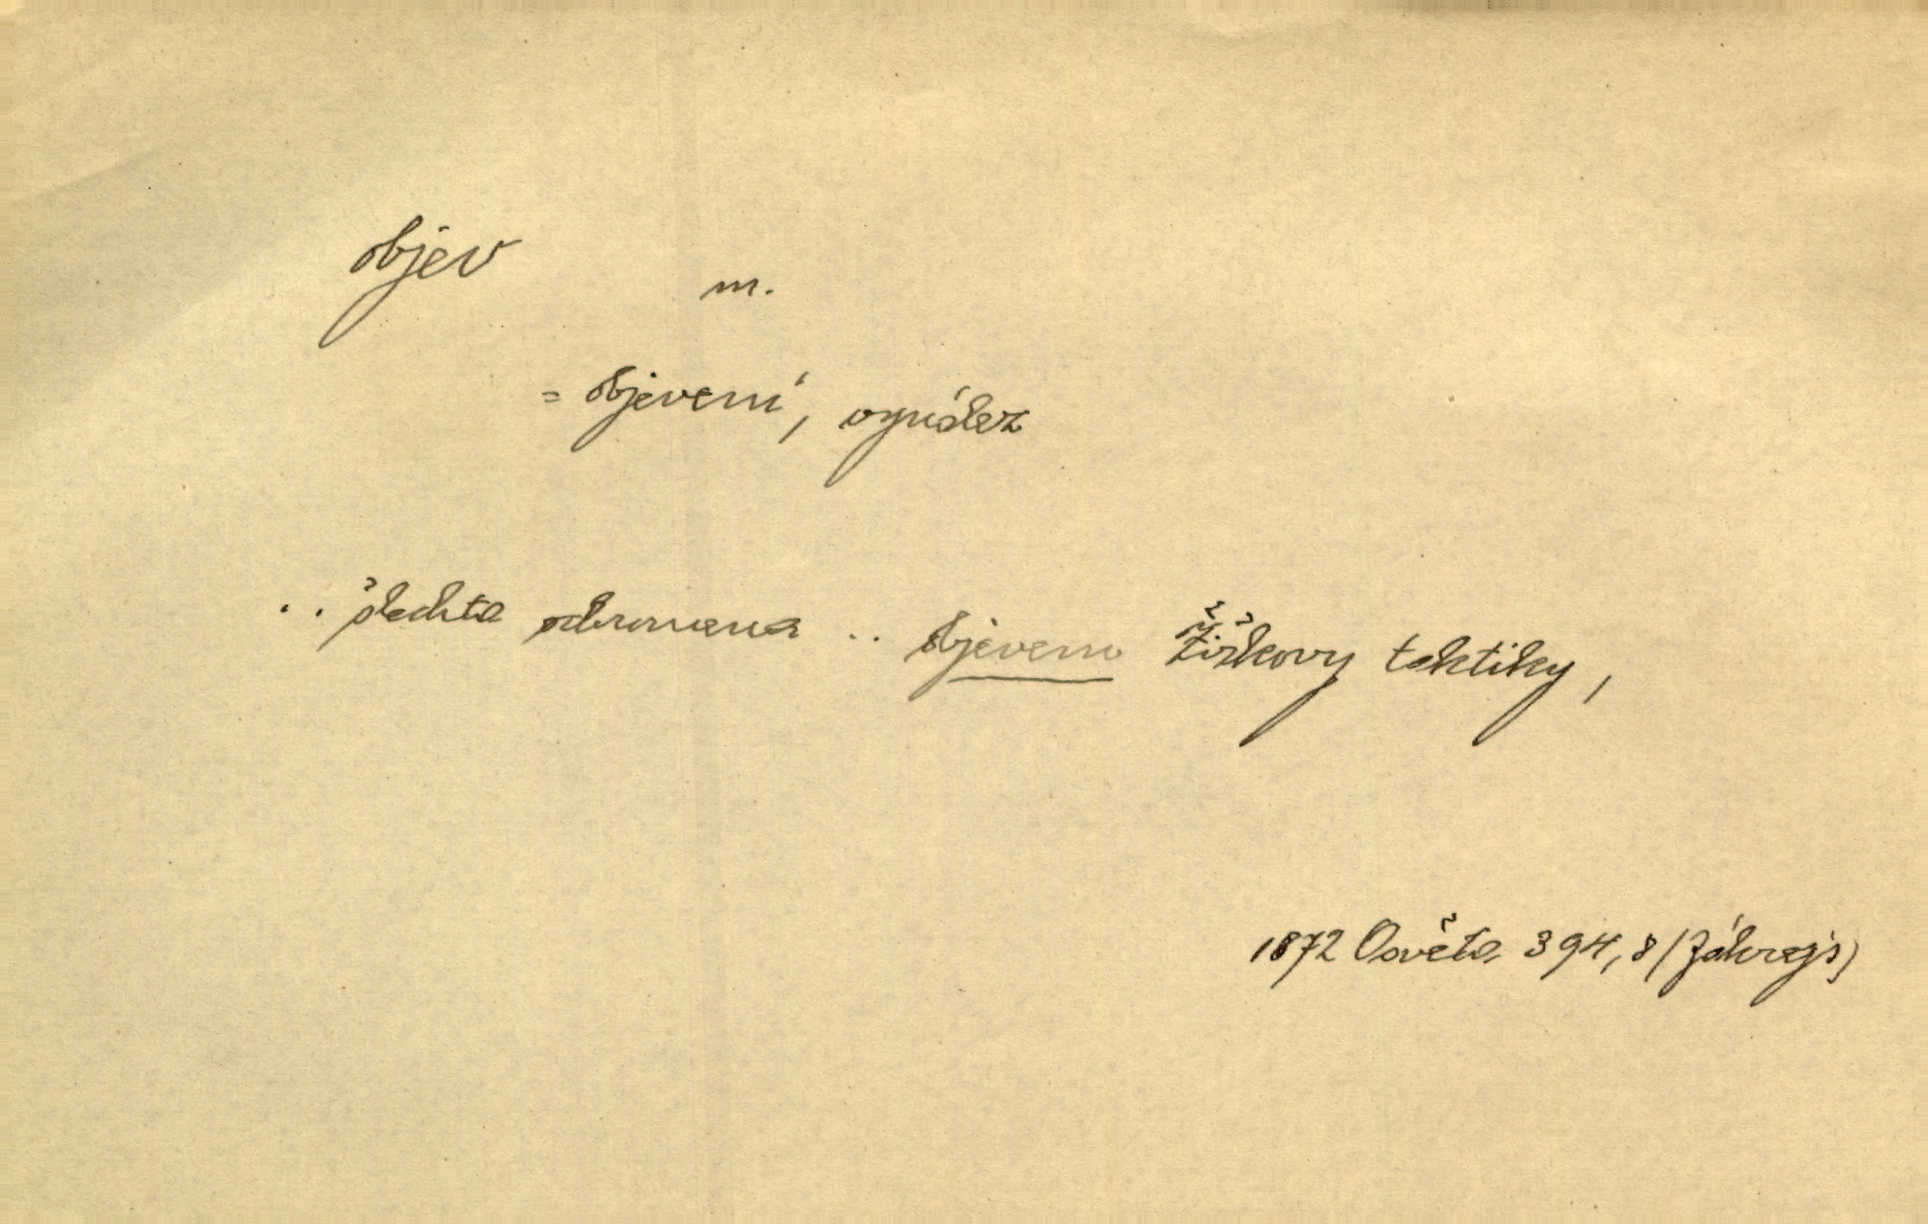 objev
m.
= objevení, vynález
.. šlechta .. objevem Žižkovy taktiky,
1872 Osvěta 394,8 (Zákrejs)